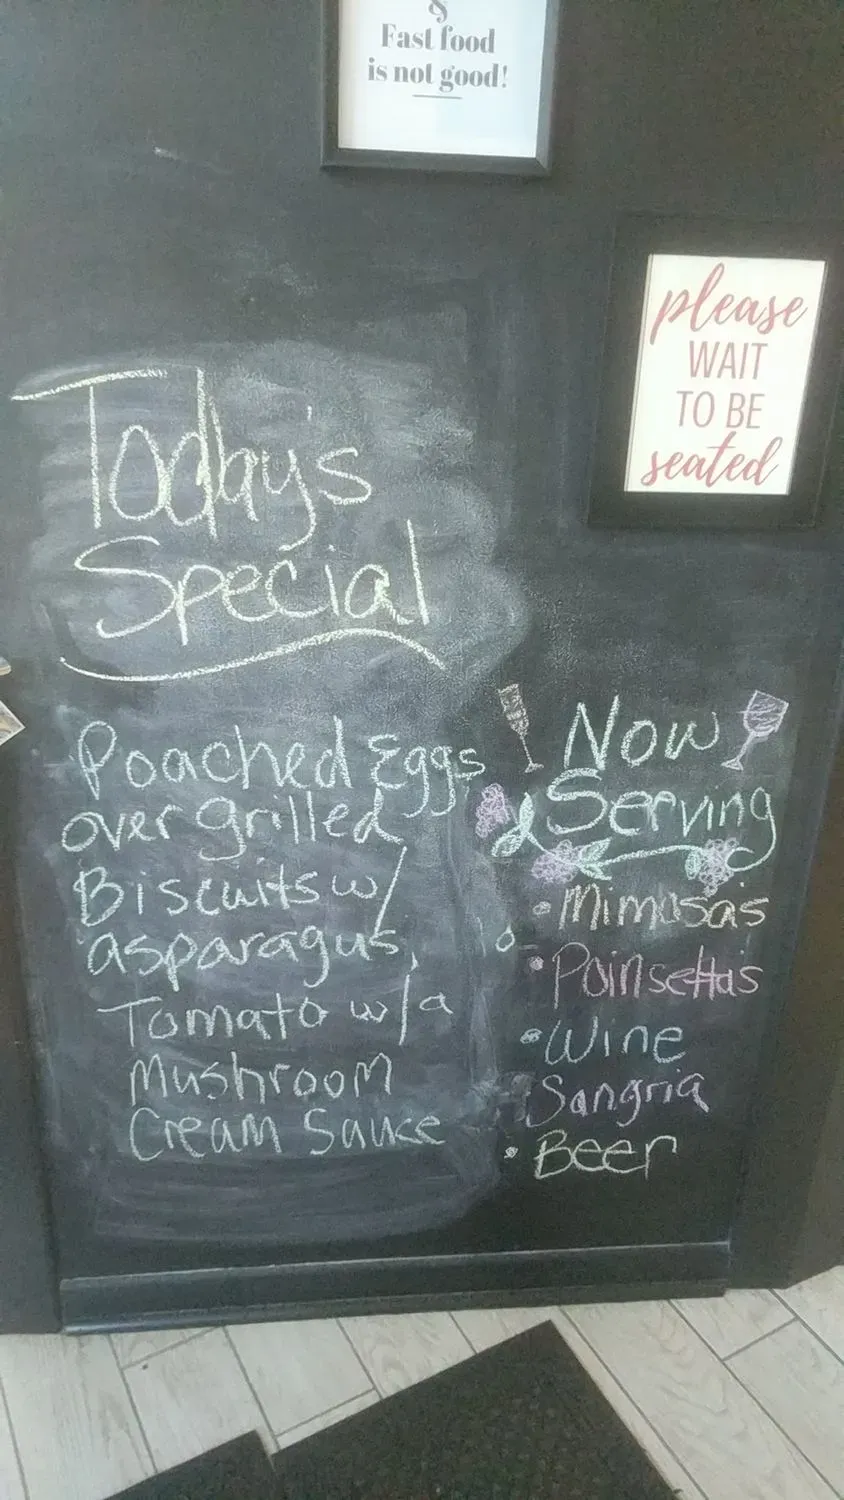 &
Fast food
is not good!
please
WAIT
TO BE
seated
Today's
Special
Poached Eggs
over grilled
Biscuits w/
asparagus,
Tomato w/a
Mushroom
Cream Sauce
Now
Serving
• Mimosa's
• Poinsetta's
• Wine
Sangria
• Beer